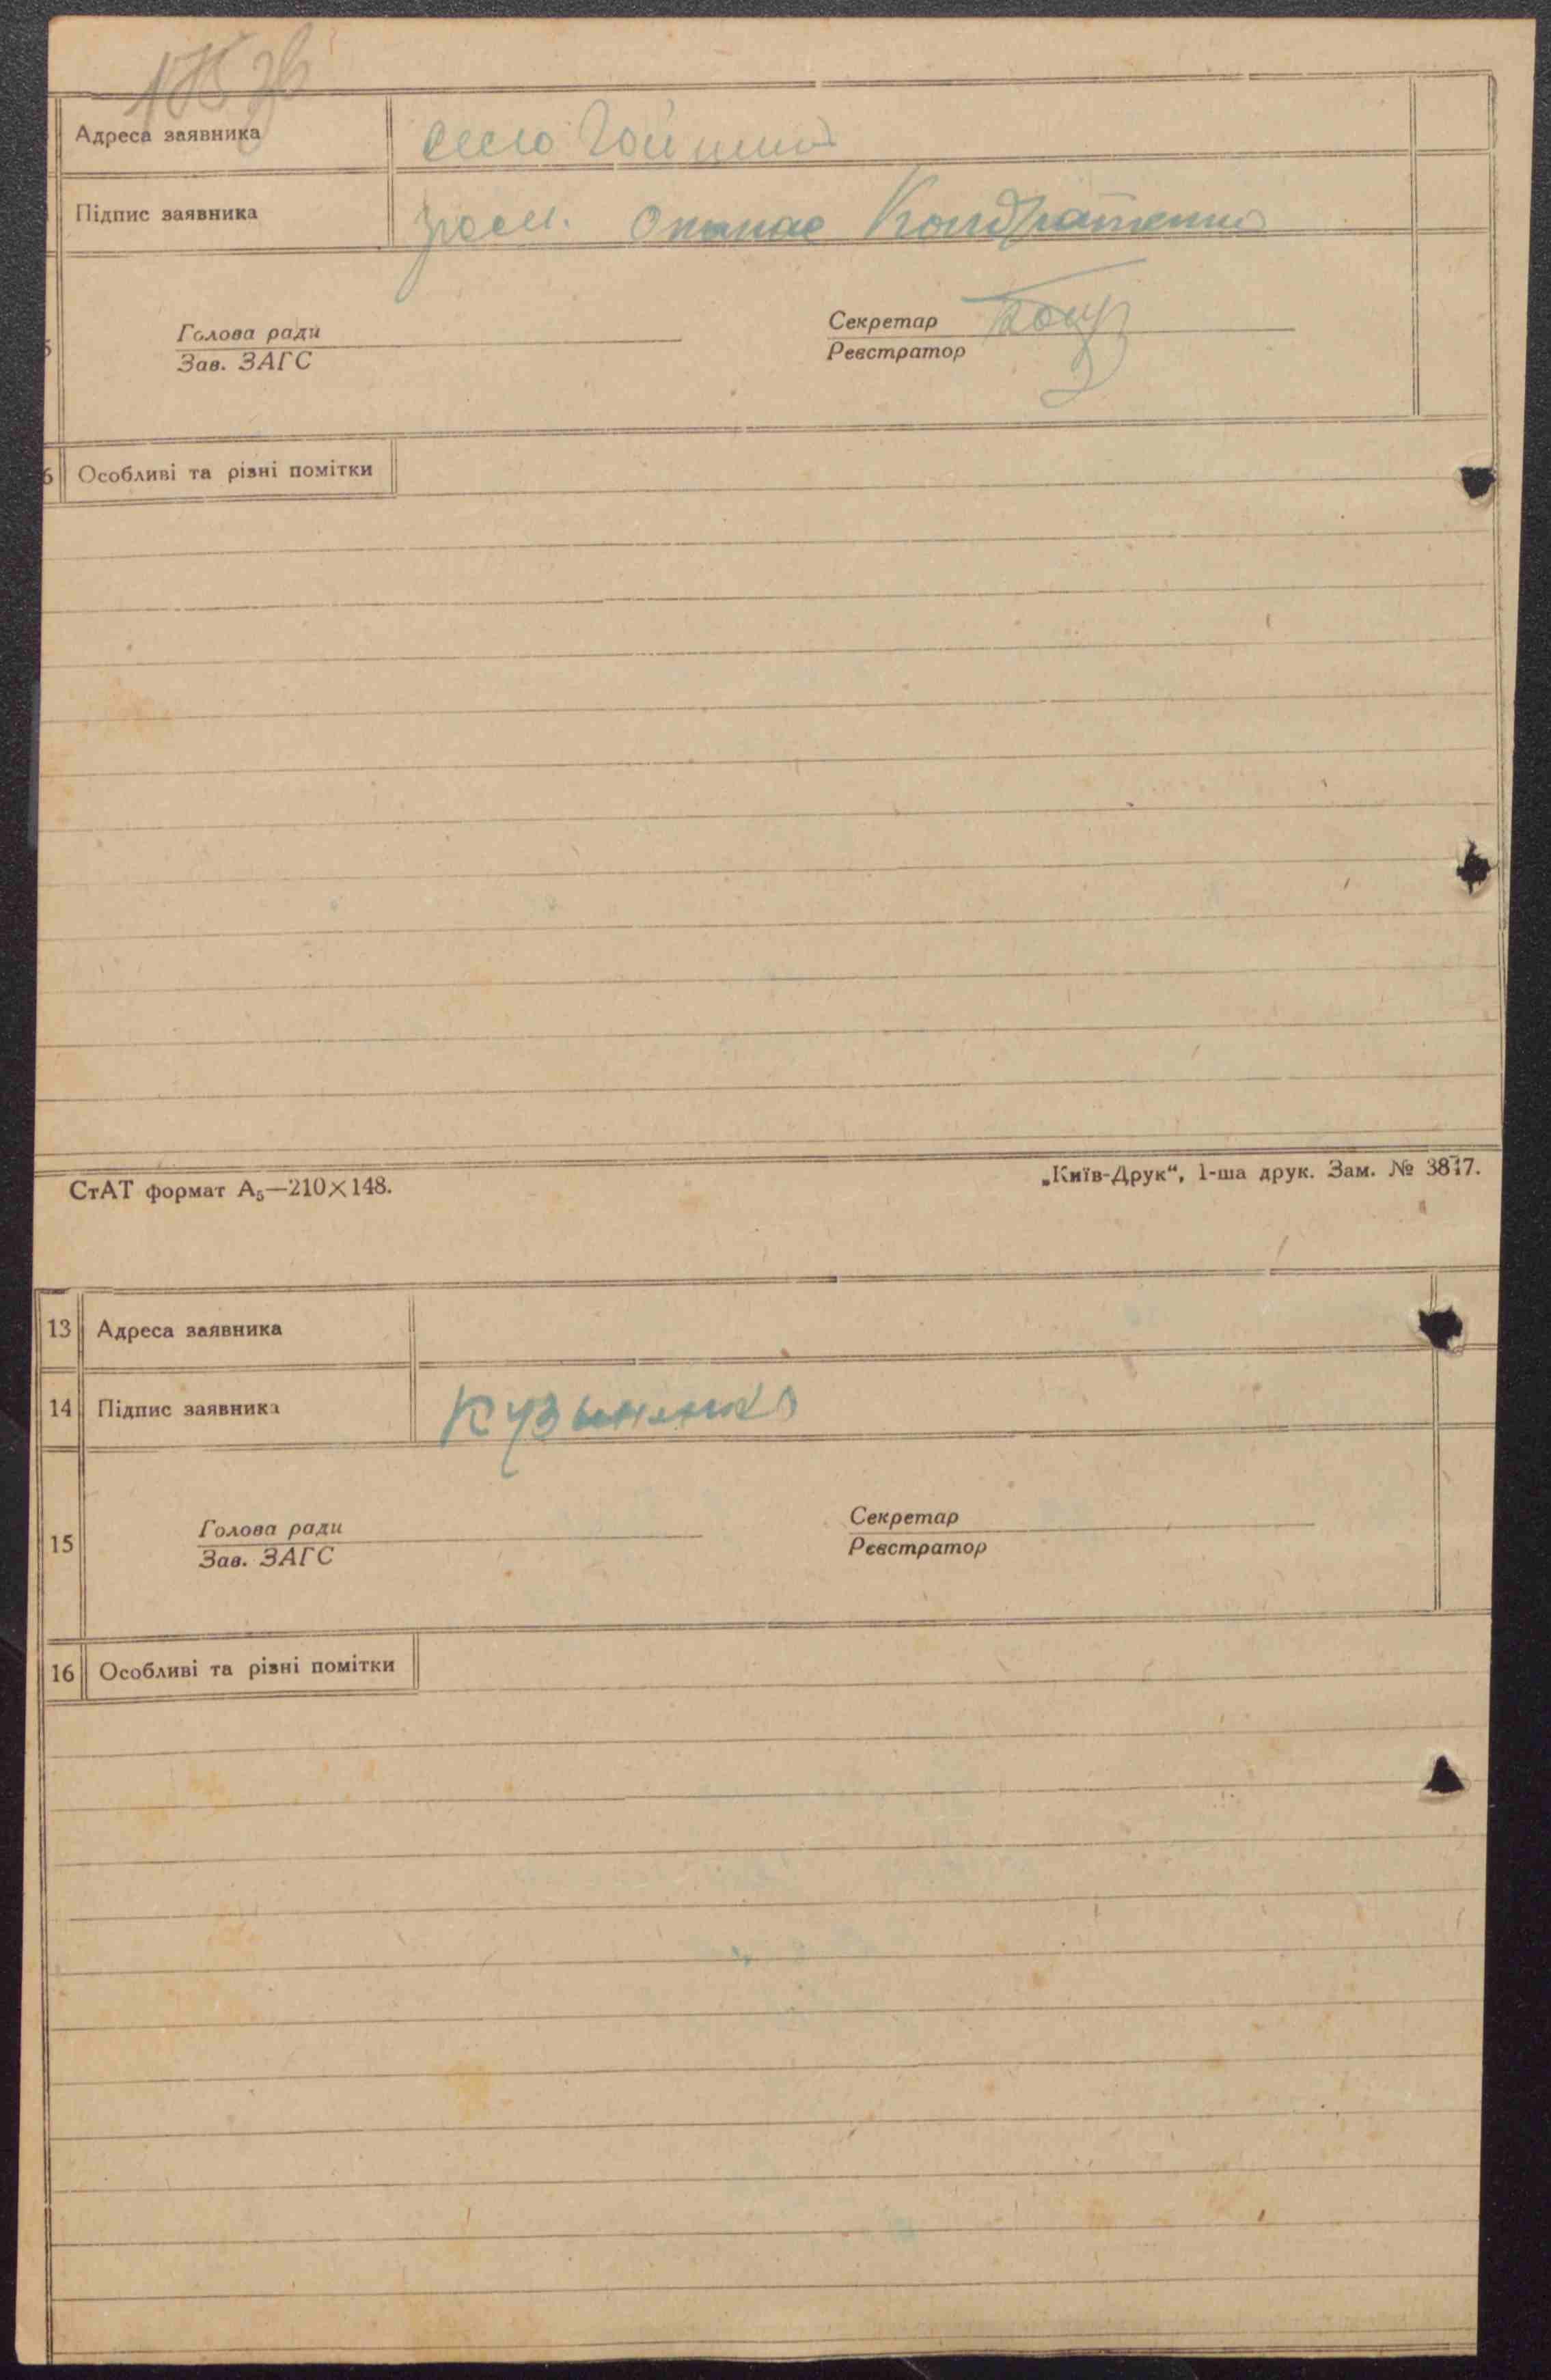 178 зв
Адреса заявника село Гойшин
Підпис заявника гром. Опанас Кондратенко
Голова ради
Зав. ЗАГС
Секретар
Реєстратор
6 Особливі та різні помітки
СтАТ формат А₅—210×148.
„Київ-Друк“, 1-ша друк. Зам. № 3817.
13 Адреса заявника
14 Підпис заявника Кузьменко
15
Голова ради
Зав. ЗАГС
Секретар
Реєстратор
16 Особливі та різні помітки